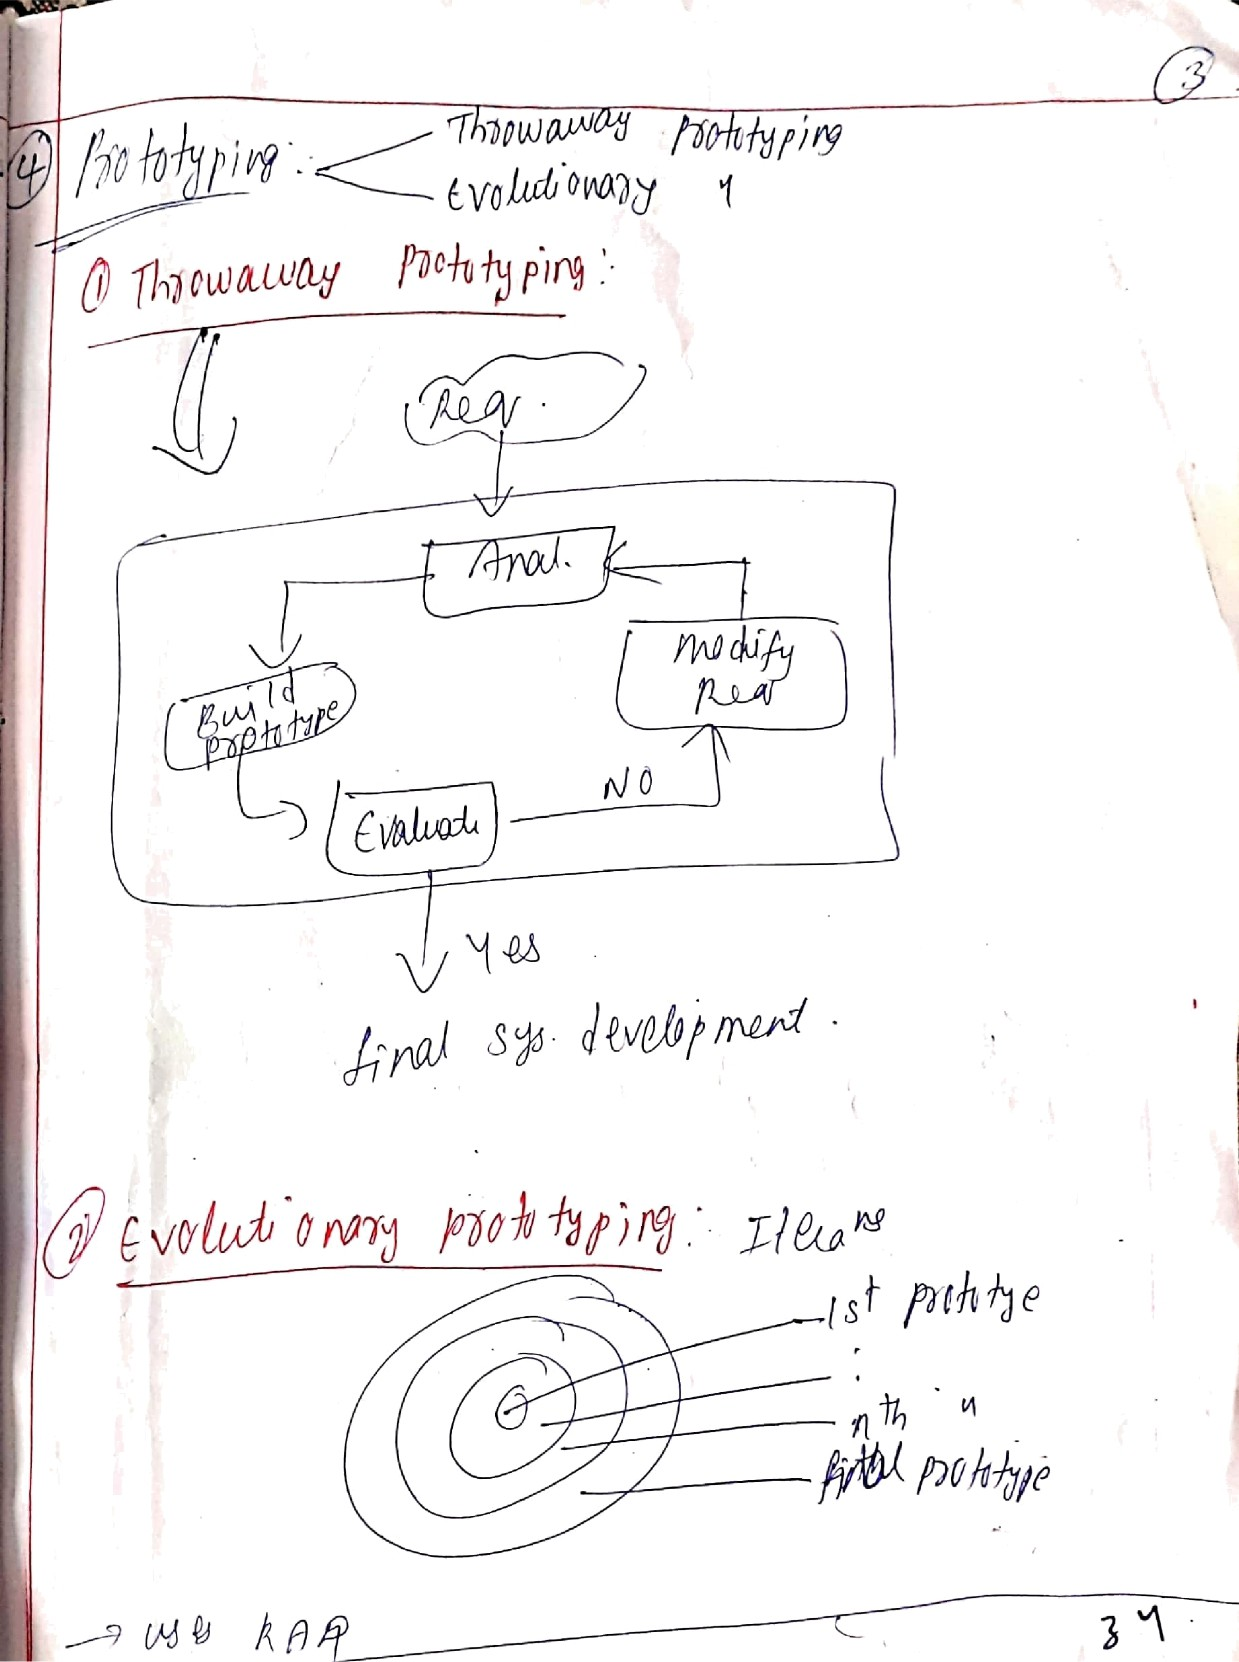 3
④ Prototyping:
Throwaway prototyping
Evolutionary "
① Throwaway Prototyping:
Req.
Anal.
Modify
Req
Build
prototype
Evaluate
NO
Yes
final sys. development.
② Evolutionary prototyping:
1st prototye
:
nth "
final prototype
→ uses
34